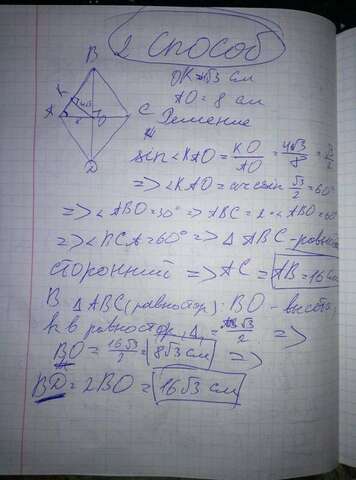 2 способ
B
K
4√3
A
8
O
C
D
OK = 4√3 см
AO = 8 см
Решение
sin∠KAO = KO/AO = 4√3/8 = √3/2
=> ∠KAO = arcsin √3/2 = 60°
=> ∠ABO = 30° => ABC = 2·∠ABO = 60°
=> ∠BCA = 60° => Δ ABC - равно-
сторонний => AC = AB = 16 см
В Δ ABC (равностор): BO - высота
h в равностор. Δ, = √3/2 =>
BO = 16√3/2 = 8√3 см =>
BD = 2BO = 16√3 см